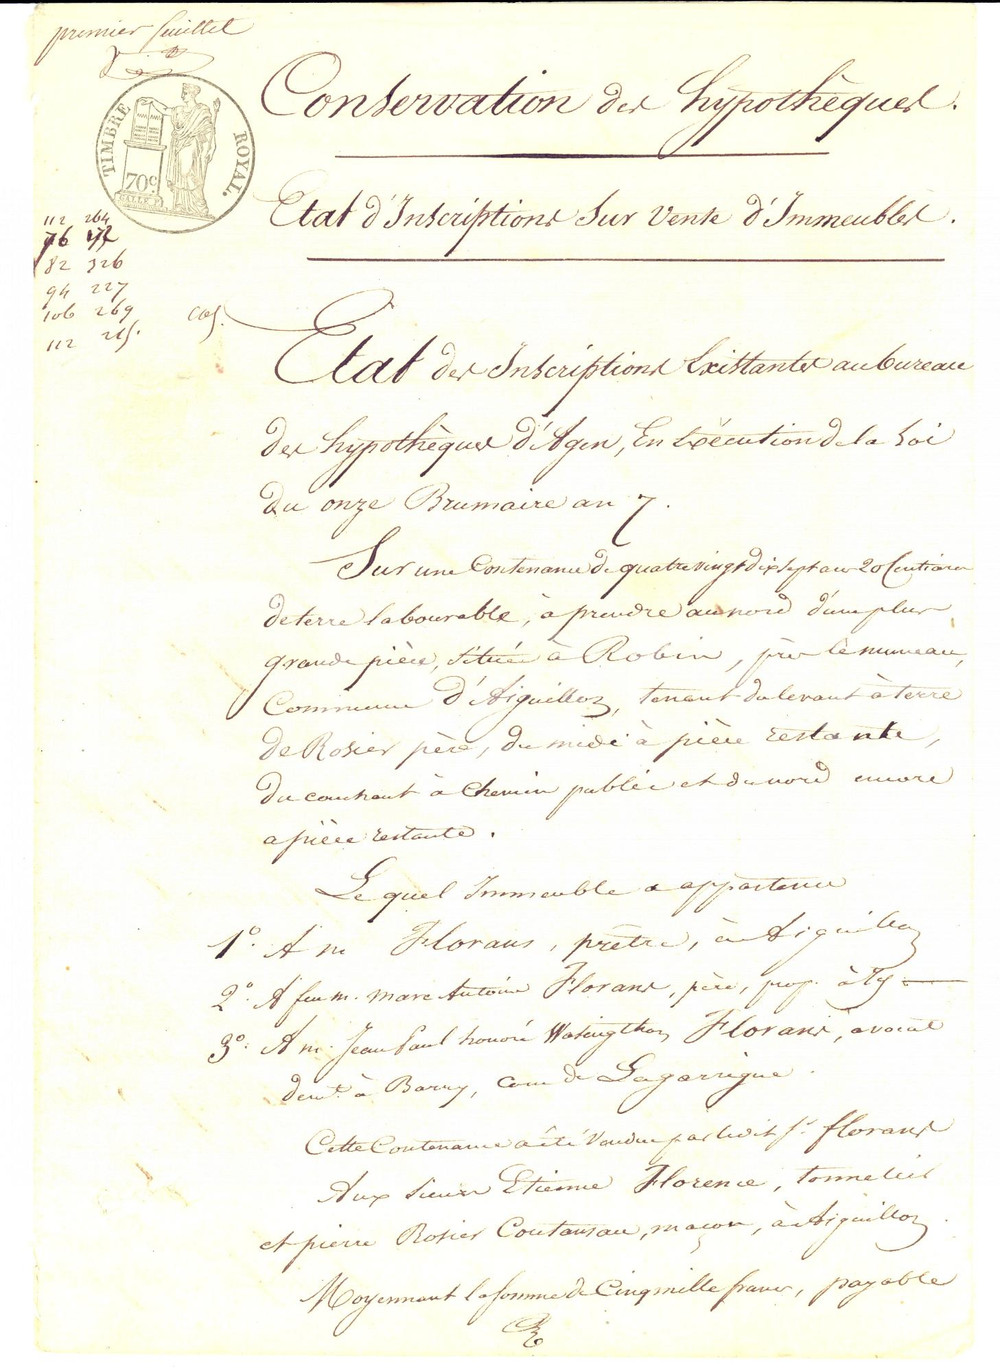 premier feuillet
TIMBRE ROYAL.
70c
112 264
76
82 326
94 227
106 269
112 215.
Cas.
Conservation des hypothèques.
Etat d'Inscriptions Sur Vente d'Immeubles.
Etat des Inscriptions Existantes au bureau
des hypothèques d'Agen, En Exécution de la Loi
du onze Brumaire an 7.
Sur une Contenance de quatre vingt dix sept ares 20 Centiares
de terre labourable, à prendre au nord d'une plus
grande pièce, située à Robin, près le
Commune d'Aiguillon, tenant du levant à terre
de Rosier père, du midi à pièce restante,
du couchant à chemin public et du nord encore
a pièce restante.
Le quel Immeuble a appartenu
1°. A m. Florans, prêtre, à Aiguillon
2°. A feu m. marc Antoine Florans, père, prop. à
3°. A m. Jean Paul honoré Wasingthon Florans, avocat
demt. à Barry, Com de Lagarrigue.
Cette Contenance a été Vendue par ledit Sr. florans
Aux Sieurs Etienne Florence, tonnelier
et pierre Rosier Coutansau, maçon, à Aiguillon
Moyennant la somme de Cinq mille francs, payable